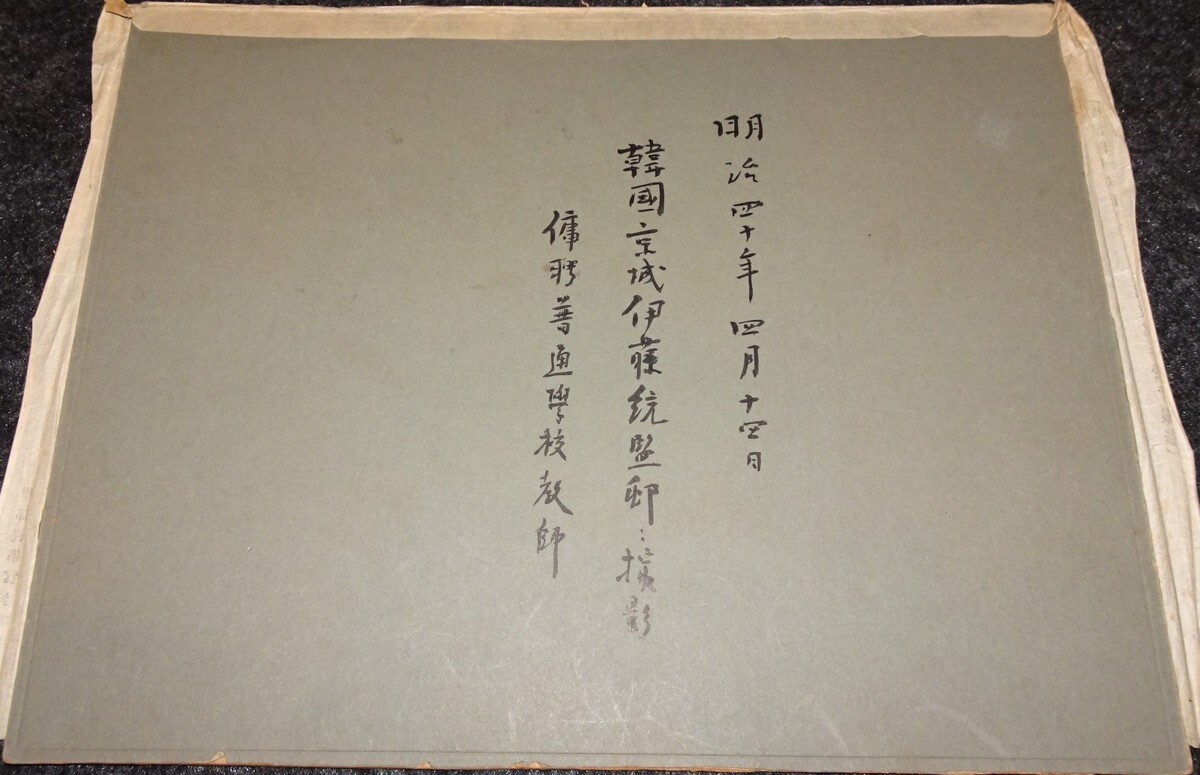 明治四十年四月十四日
韓國京城伊藤統監邸ニ撮影
傭聘普通學校教師